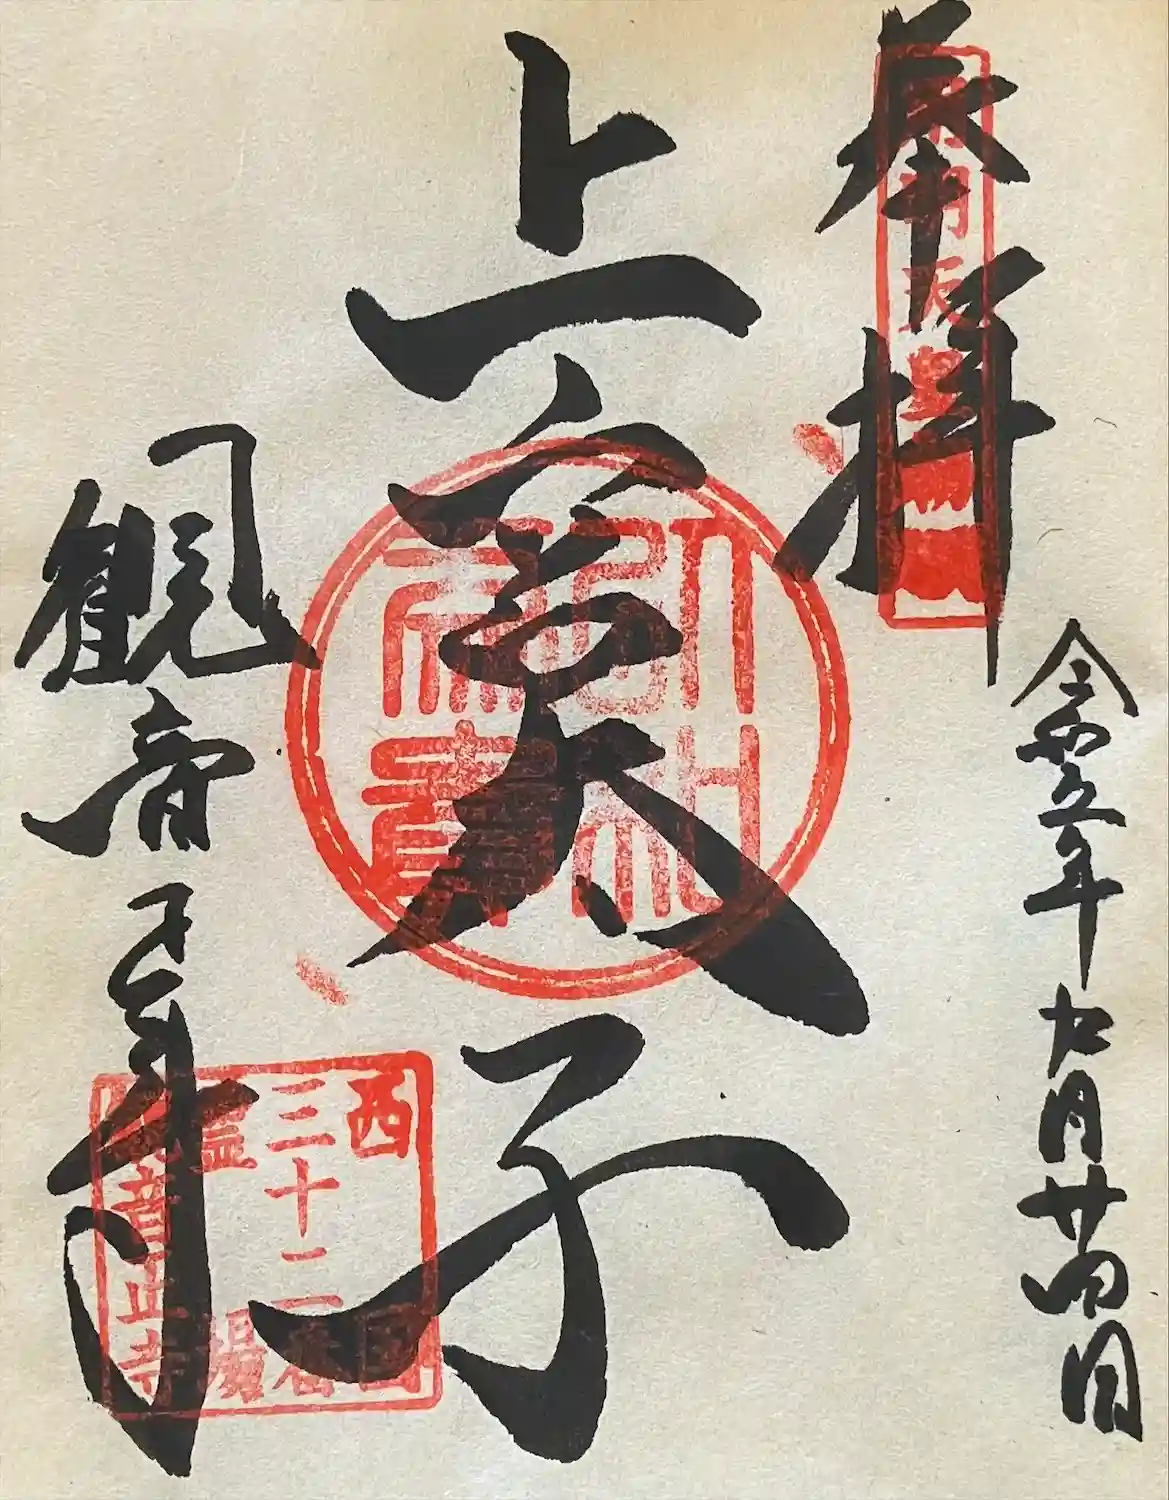 奉拝
令和五年九月廿四日
上宮太子
觀音正寺
西国
三十二番
霊場
観音正寺